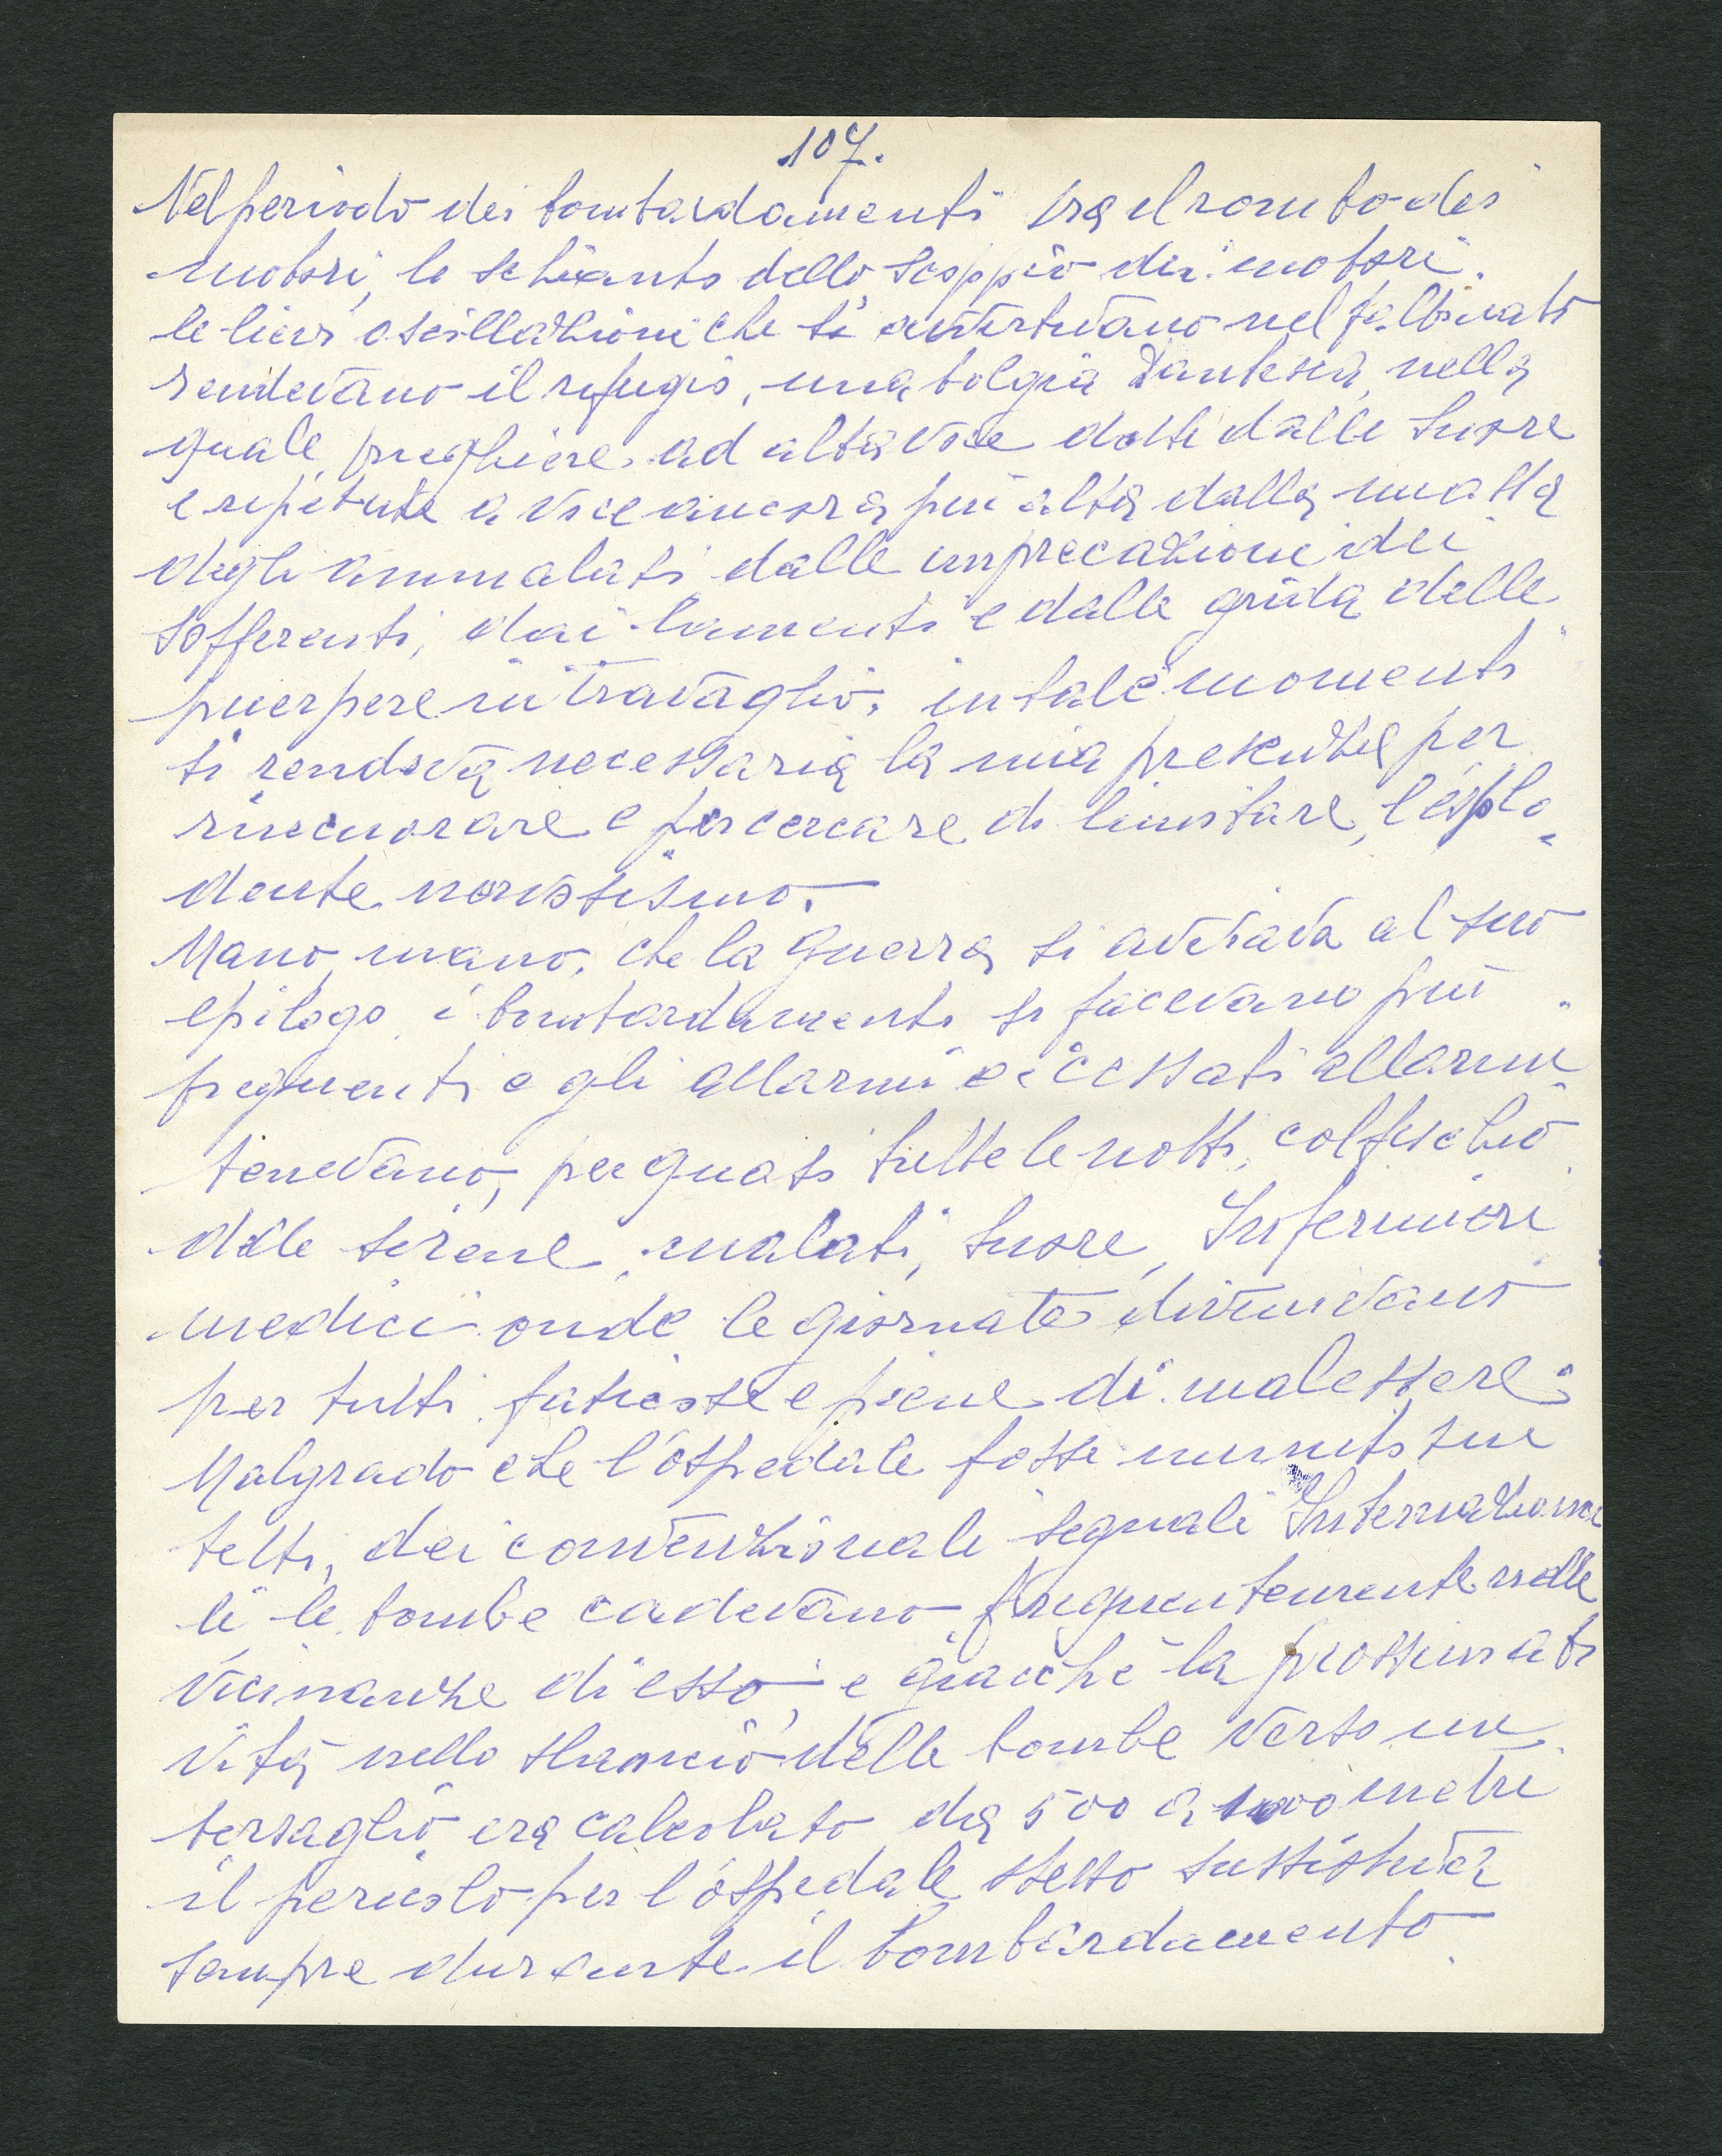 107.
Nel periodo dei bombardamenti tra il rombo dei
motori, lo schianto dello scoppio dei motori.
le lievi oscillazioni che si avvertivano nel fabbricato
rendevano il rifugio, una bolgia Dantesca, nella
quale, preghiere ad alta voce dette dalle Suore
e ripetute a voce ancora più alta dalla massa
degli ammalati, dalle imprecazioni dei
sofferenti, dai lamenti e dalle grida delle
puerpere in travaglio, in tale momenti
si rendeva necessaria la mia presenza per
rincuorare e per cercare di limitare, l'esplo-
dente
Mano, mano, che la guerra si avviava al suo
epilogo, i bombardamenti si facevano più
frequenti e gli allarmi e i cessati allarmi
tenevano, per quasi tutte le notti, col fischio
delle sirene, malati, Suore, Infermieri
medici onde le giornate divenivano
per tutti faticose e piene di malessere.
Malgrado che l'ospedale fosse munito sui
tetti, dei convenzionali segnali Internaziona
li le bombe cadevano frequentemente nelle
vicinanze di esso, e giacchè la prossimati
vità nello slancio delle bombe verso un
bersaglio era calcolato da 500 a 1000 metri
il pericolo per l'ospedale stesso sussisteva
sempre durante il bombardamento.